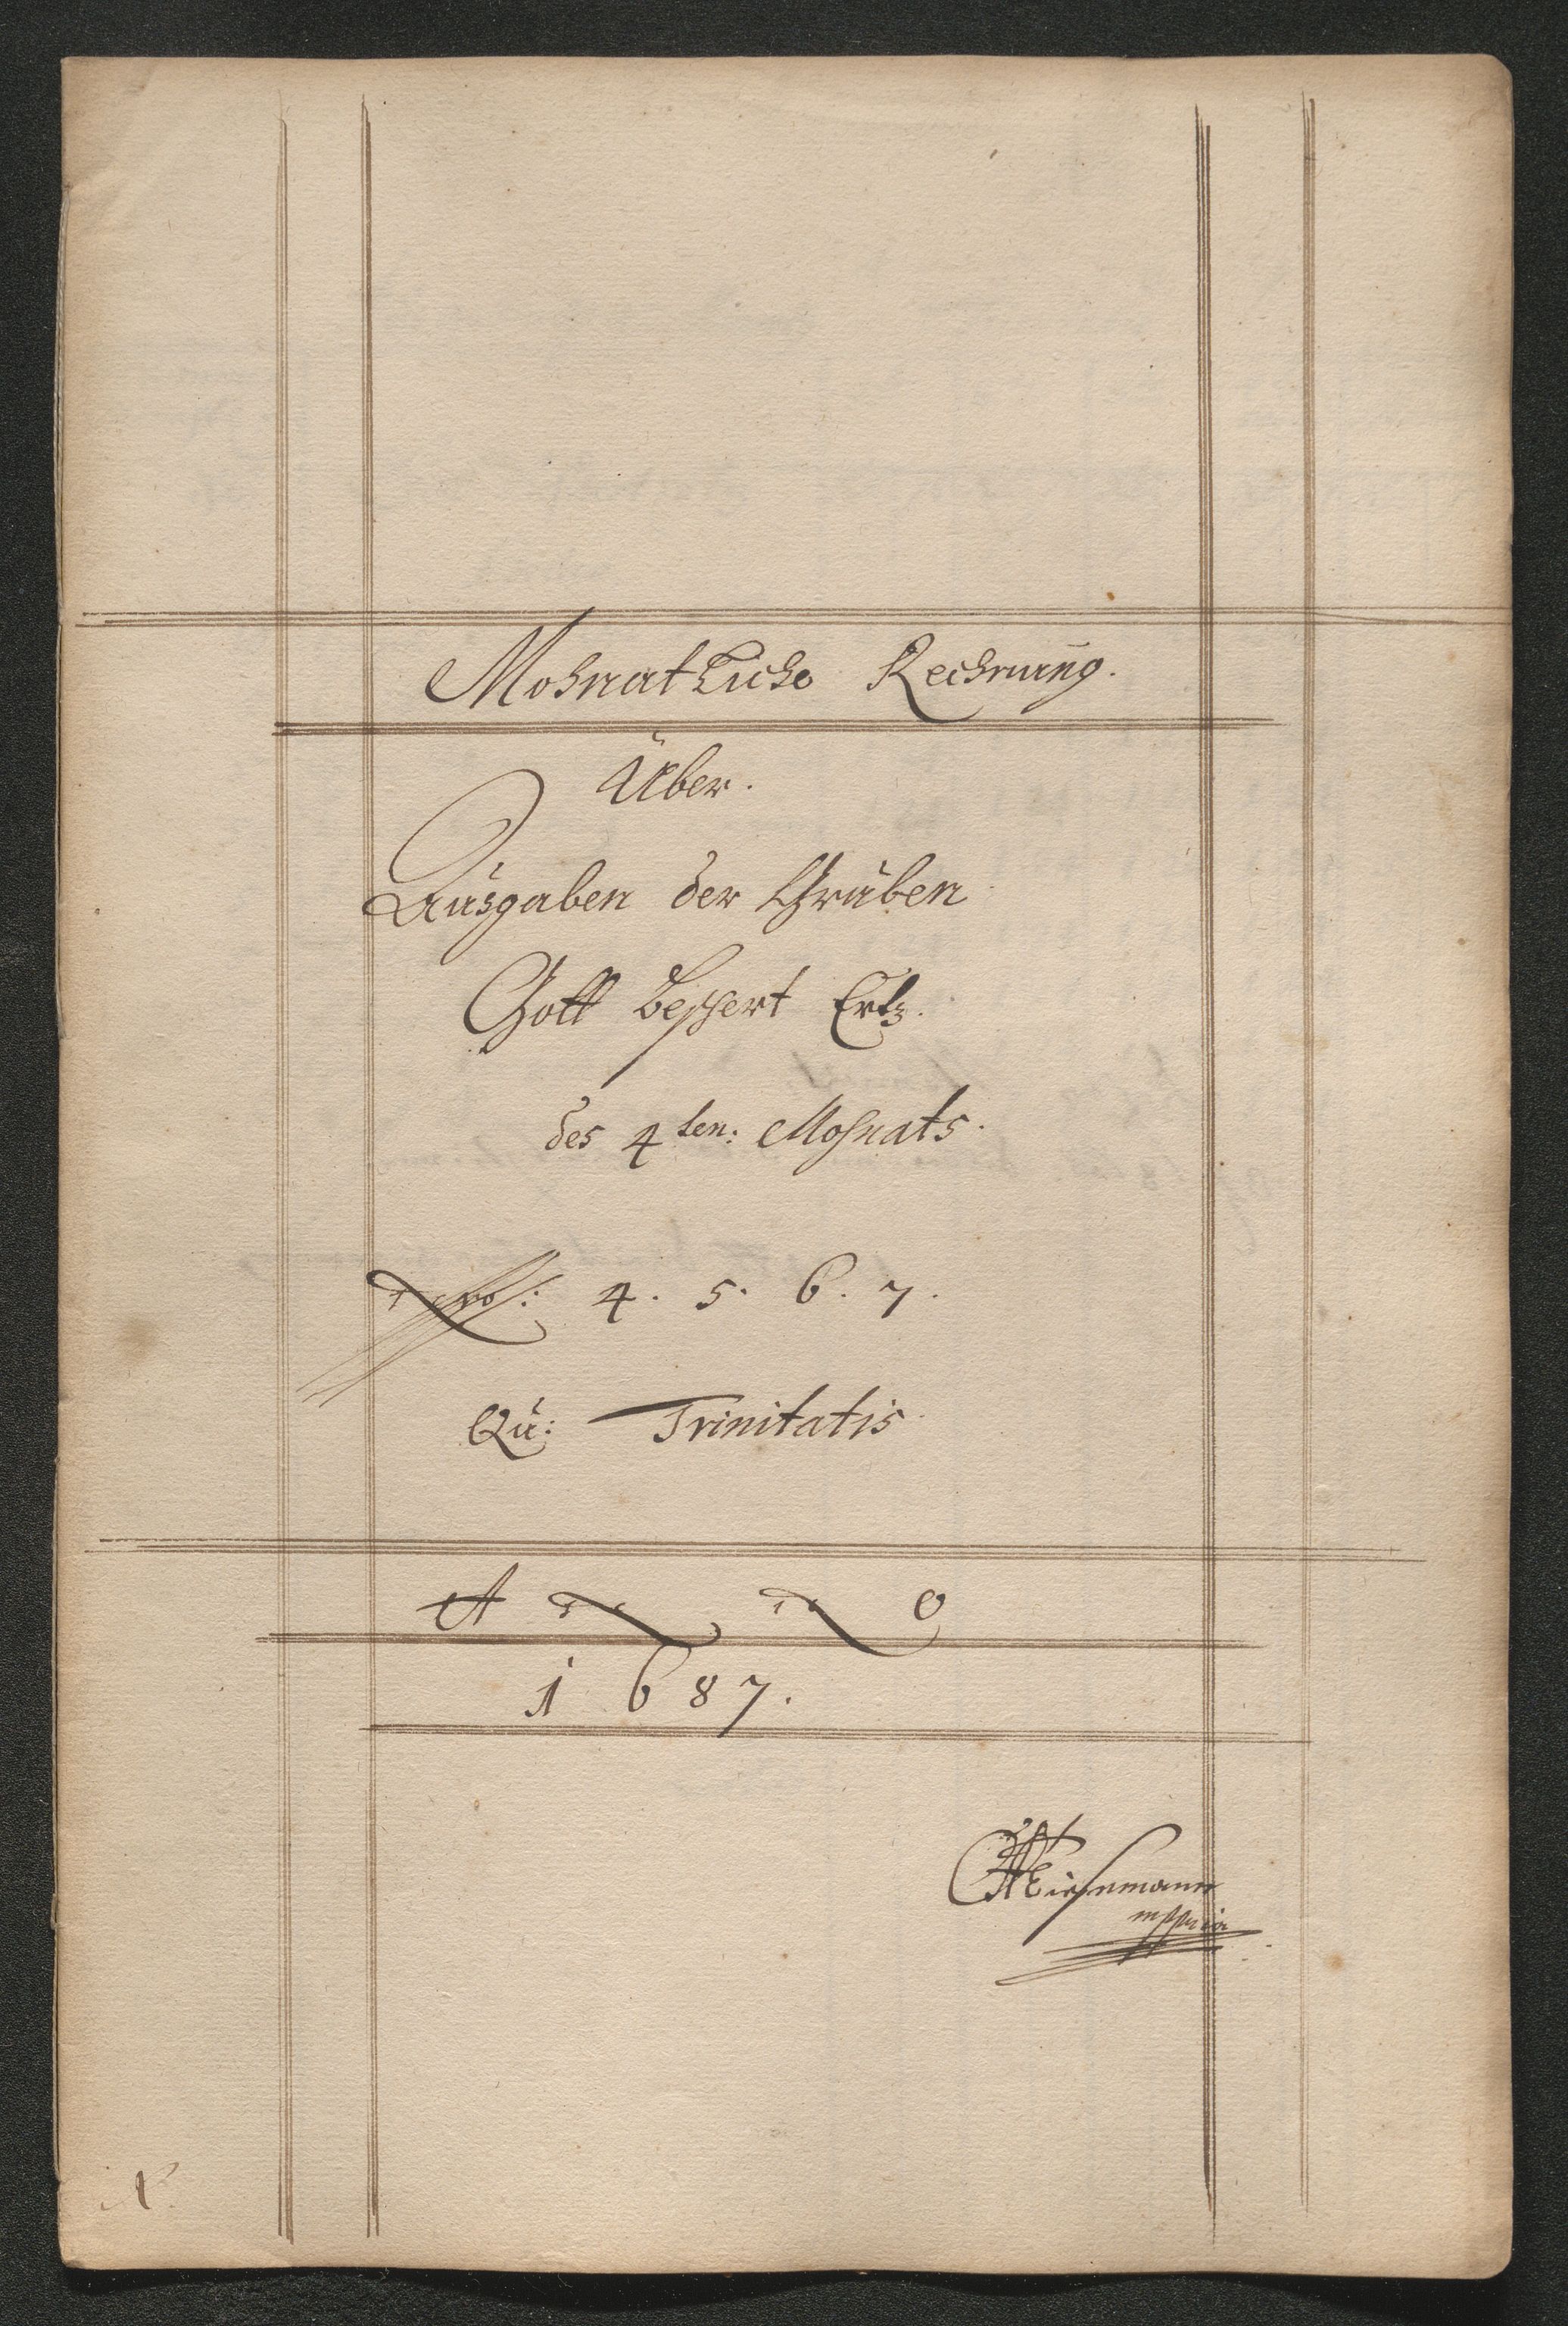 Mohnatliche Rechnung.
Über.
Ausgaben der Gruben
Gott beschert Ertz.
des 4ten: Mohnats.
Nro: 4. 5. 6. 7.
Qu: Trinitatis
A N N O
1687.
mppria